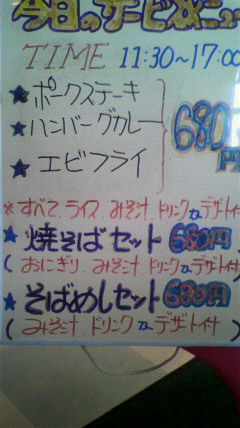 今日のサービスメニュー
TIME 11:30~17:00
★ポークステーキ
★ハンバーグカレー
★エビフライ
680円
※すべて、ライス、みそ汁、ドリンクorデザート付
★焼そばセット 680円
(おにぎり、みそ汁、ドリンクorデザート付
★そばめしセット 680円
(みそ汁、ドリンクorデザート付